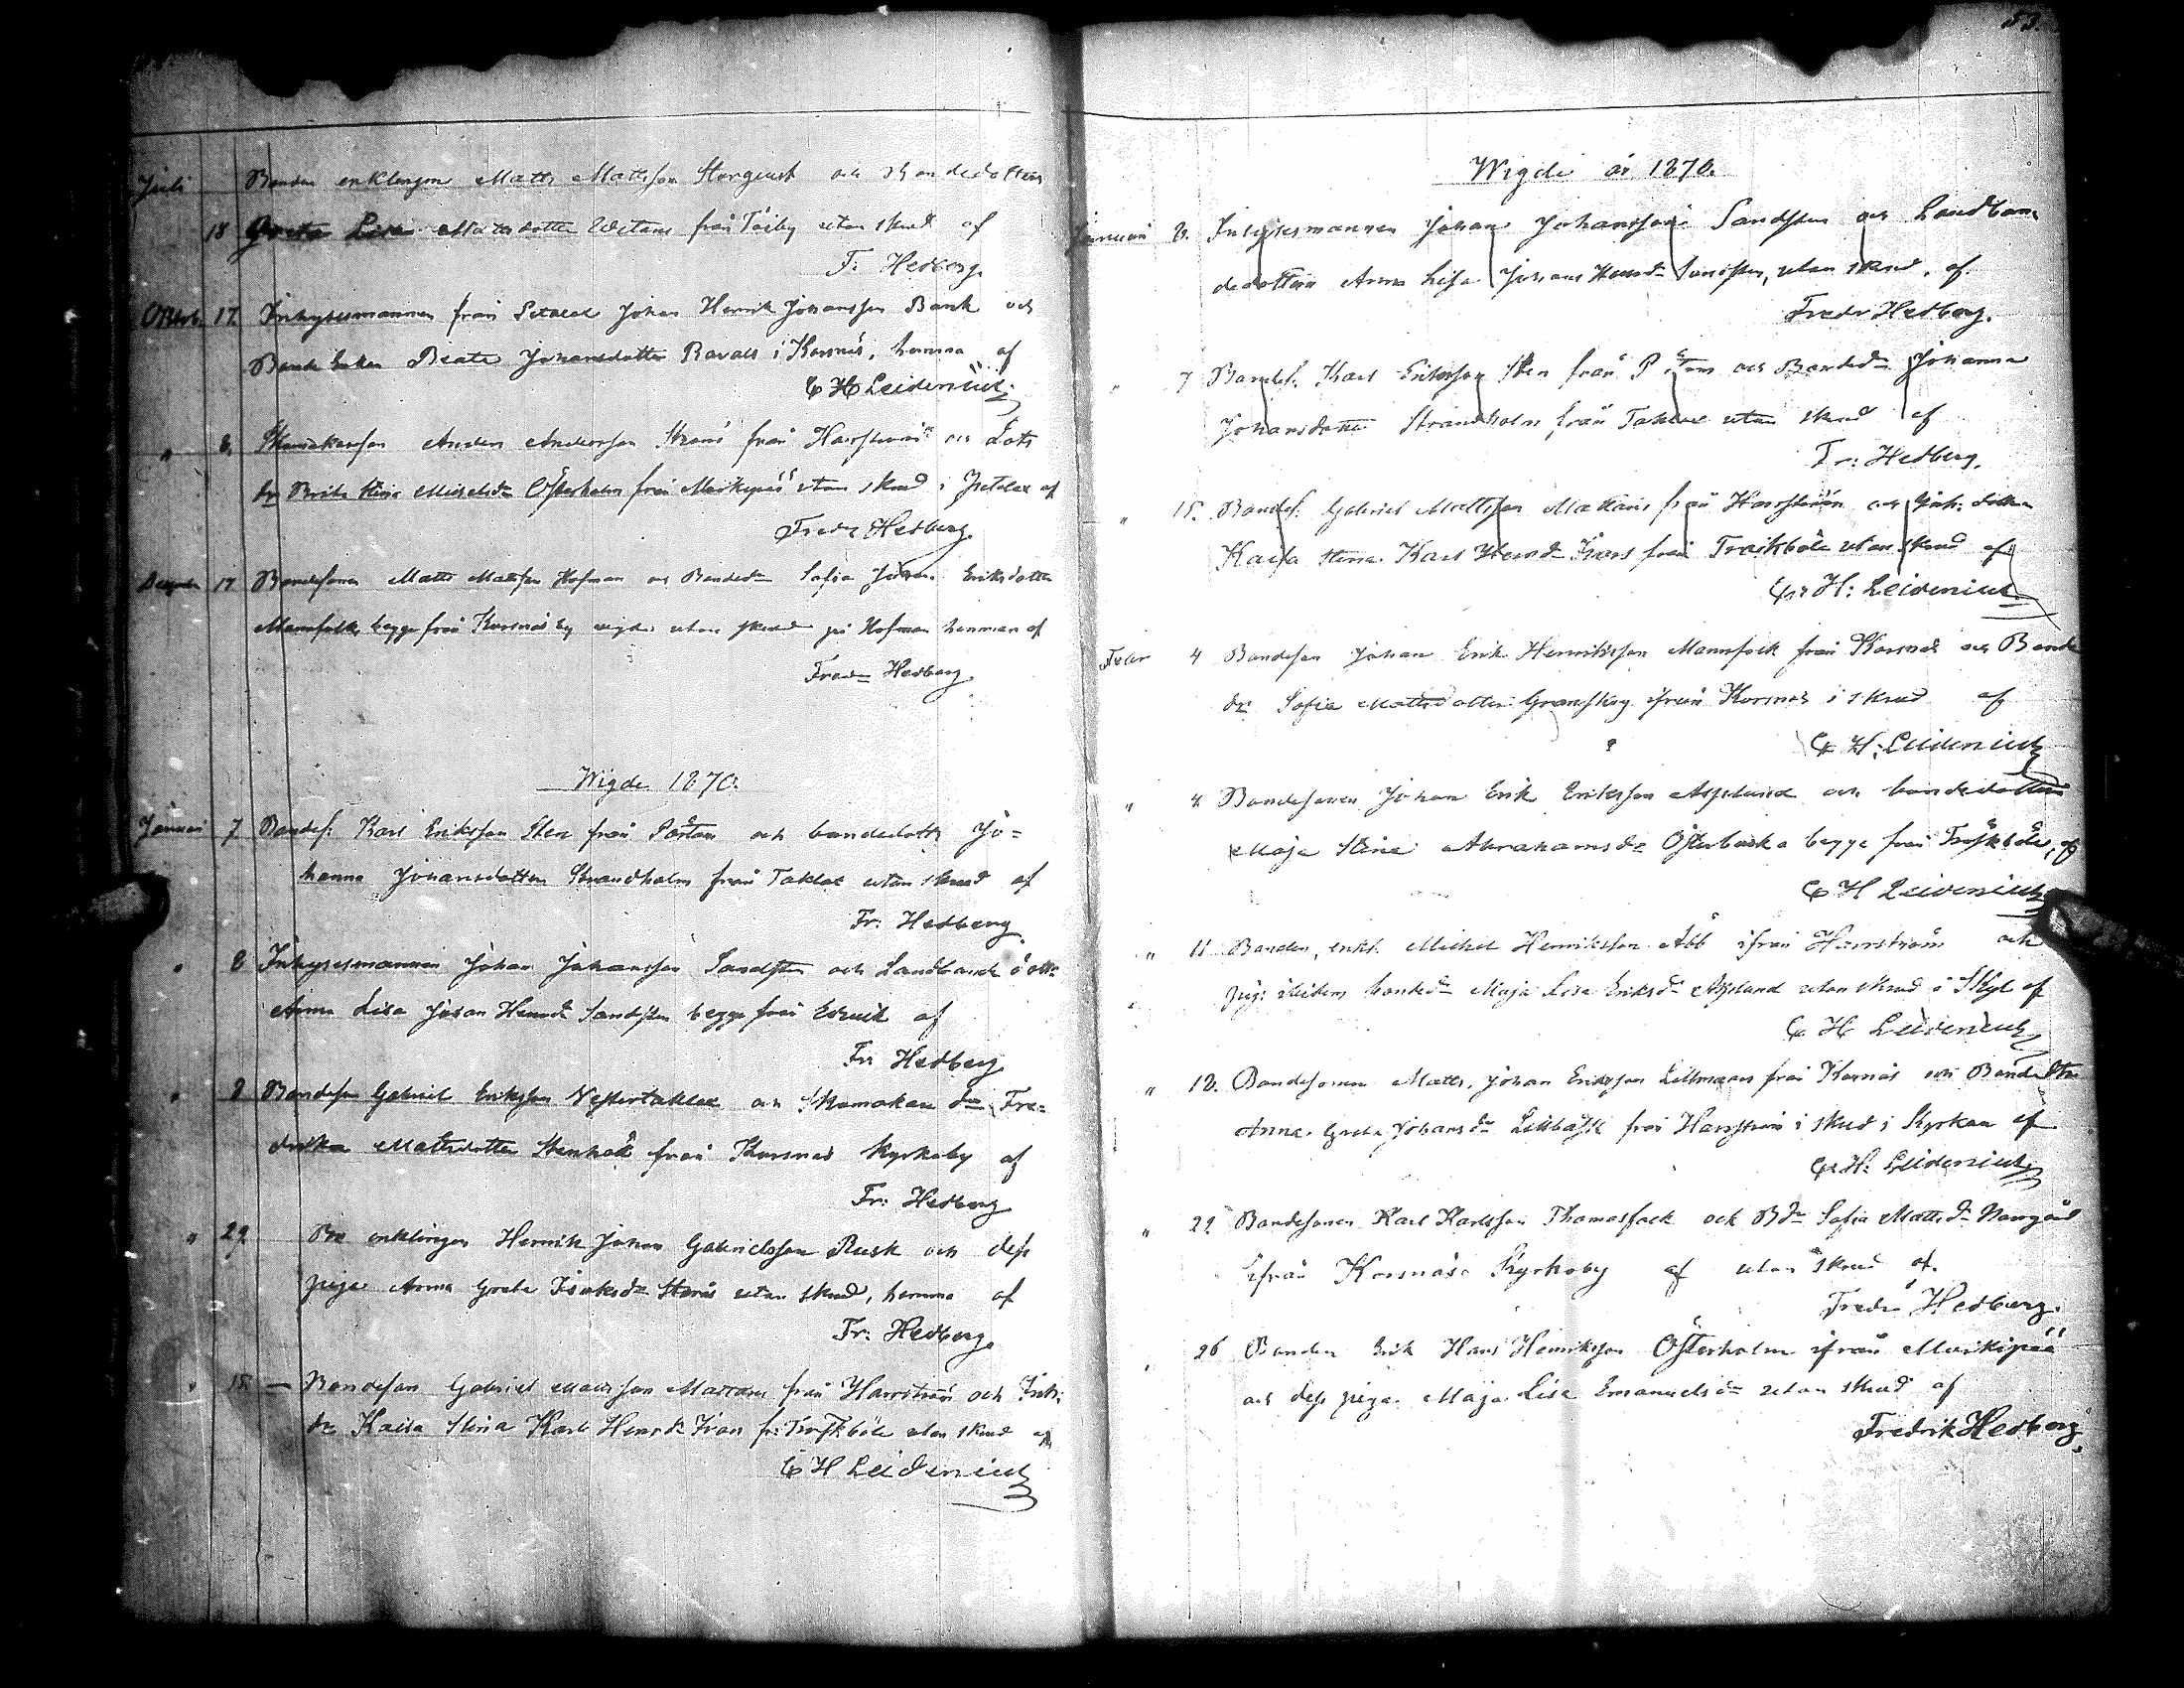 53.
Juli Bonden enklingen Matts Mattsson Storgeust och Bondedottren
18 Greta Lisa Mattsdotter från Töiby utan skrud af
F. Hedberg.
Oktob. 17. Inhysesmannen från Petalax Johan Henrik Johansson Bank och
Bonde Enkan Beata Johansdotter Ravals i Korsnäs, hemma af
C H Leidenius
" 8. Skomakarson Anders Andersson från Harrström och Lots
dr Brita Stina Michelsdr Österholm från Murikipää utan skrud i Petalax af
Fredr Hedberg.
17 Bondesonen Matts Mattsson Hofman och Bondedr Sofia Johan. Eriksdotter
Mannfolk begge från Korsnäs by vigde utan skrud på Hofman hemman af
Fredr Hedberg
Wigde 1870.
Januari 7 Bondes. Karl Eriksson Sten från Pörtom och bondedottr Jo=
hanna Johansdotter Strandholm från Taklax utan skrud af
Fr: Hedberg
" 8 Inhysesmannen Johan Johansson Sandsten och Landbonde dottr
Anna Lisa Johan Henrdr Sandsten begge från Edsvik af
Fr Hedberg
" 8 Bondeson Gabriel Eriksson Vestertaklax och Skomakare dr Fre=
drika Mattsdotter Stenbäck från Korsnäs Kyrkoby af
Fr: Hedberg
" 29 Bde enklingen Henrik Johan Gabrielsson Rusk och dess
piga Anna Greta Isaksdr Storås utan skrud, hemma af
Fr: Hedberg.
" 15. — Bondeson Gabriel Mattsson Mattans från Harrström och Inh:
dr Kaisa Stina Karl Henrdr Ivars fr: Träskböle utan skrud af
C H Leidenius
Wigde år 1870.
Januari 8. Inhysesmannen Johan Johansson Sandsten och Landbon-
dedottren Anna Lisa Johans Henrdr Sandsten, utan skrud, af
Fredr Hedberg.
" 7 Bondes. Karl Eriksson Sten från Pörtom och Bondedr Johanna
Johansdotter Strandholm från Taklax utan skrud af
Fr: Hedberg.
" 15. Bondes. Gabriel Mattsson Mattans från Harrström och Inh: dotter
Kaisa Stina Karl Henrdr Ivars från Träskböle utan skrud af
C H: Leidenius
Febr 4 Bondeson Johan Erik Henriksson Mannfolk från Korsnäs och Bonde
dr Sofia Mattsdotter Granskog ifrån Korsnäs i skrud af
C H: Leidenius
" 4. Bondesonen Johan Erik Eriksson Asplund och bondedottren
Maja Stina Abrahamsdr Österbacka begge från Träskböle, af
C H Leidenius
" 11 Bonden, enkl. Michel Henriksson Åbb ifrån Harrström och
pig: bondedr Maja Lisa Eriksdr Asplund utan skrud af
C H Leidenius
" 18. Bondesonen Matts Johan Eriksson Lillmans från Korsnäs och Bonde dtr
Anna Greta Johansdr Lillbåsk från Harrström i skrud i Kyrkan af
C H: Leidenius
" 29 Bondesonen Karl Karlsson Thomasfolk och Bdr Sofia Mattsdr Norrgård
ifrån Korsnäs Kyrkoby af utan skrud af
Fredr Hedberg.
" 26 Bonden Erik Hans Henriksson Österholm ifrån Murikipää
och dess piga Maja Lisa Emanuelsdr utan skrud af
Fredrik Hedberg.